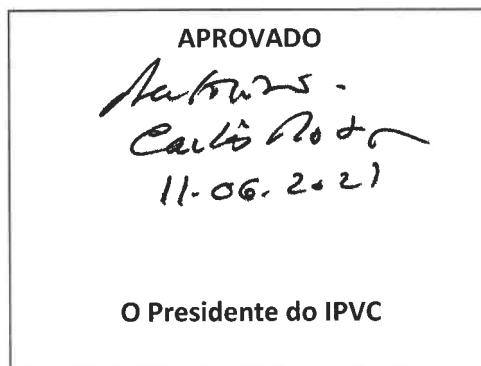 APROVADO
Carlos
11-06.2021
O Presidente do IPVC